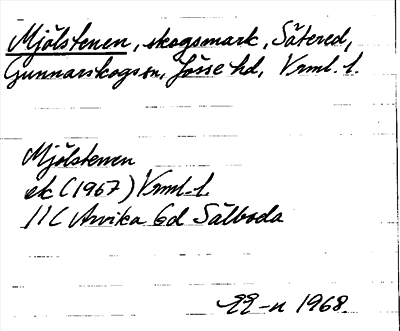 Mjölstenen, skogsmark, Sätered,
Gunnarskogs sn, Jösse hd, Vrml. l.
Mjölstenen
ek (1967) Vrml. l.
11C Arvika 6d Sälboda
EE-n 1968.